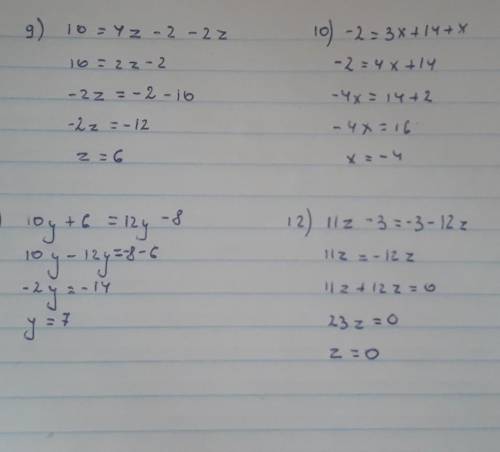 9) 10 = 4z - 2 - 2z
10 = 2z - 2
-2z = -2 - 10
-2z = -12
z = 6
10) -2 = 3x + 14 + x
-2 = 4x + 14
-4x = 14 + 2
-4x = 16
x = -4
) 10y + 6 = 12y - 8
10y - 12y = -8 - 6
-2y = -14
y = 7
12) 11z - 3 = -3 - 12z
11z = -12z
11z + 12z = 0
23z = 0
z = 0